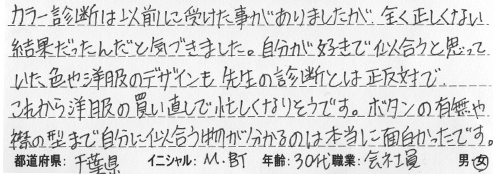 カラー診断は以前に受けた事がありましたが、全く正しくない
結果だったんだと気づきました。自分が好きで似合うと思って
いた色や洋服のデザインも先生の診断とは正反対で、
これから洋服の買い直しで忙しくなりそうです。ボタンの有無や
襟の型まで自分に似合う物が分かるのは本当に面白かったです。
都道府県: 千葉県 イニシャル: M.BT 年齢: 30代 職業: 会社員 男・女